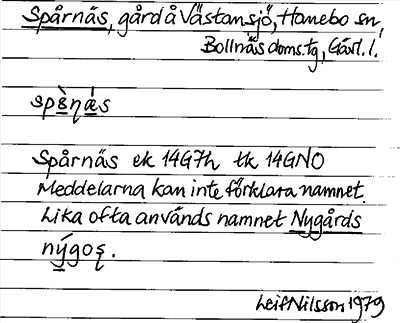 Spårnäs, gård å Västansjö, Hanebo sn,
Bollnäs doms.tg, Gävl. l.
Spårnäs ek 14G7h tk 14GNO
Meddelarna kan inte förklara namnet.
Lika ofta används namnet Nygårds
Leif Nilsson 1979